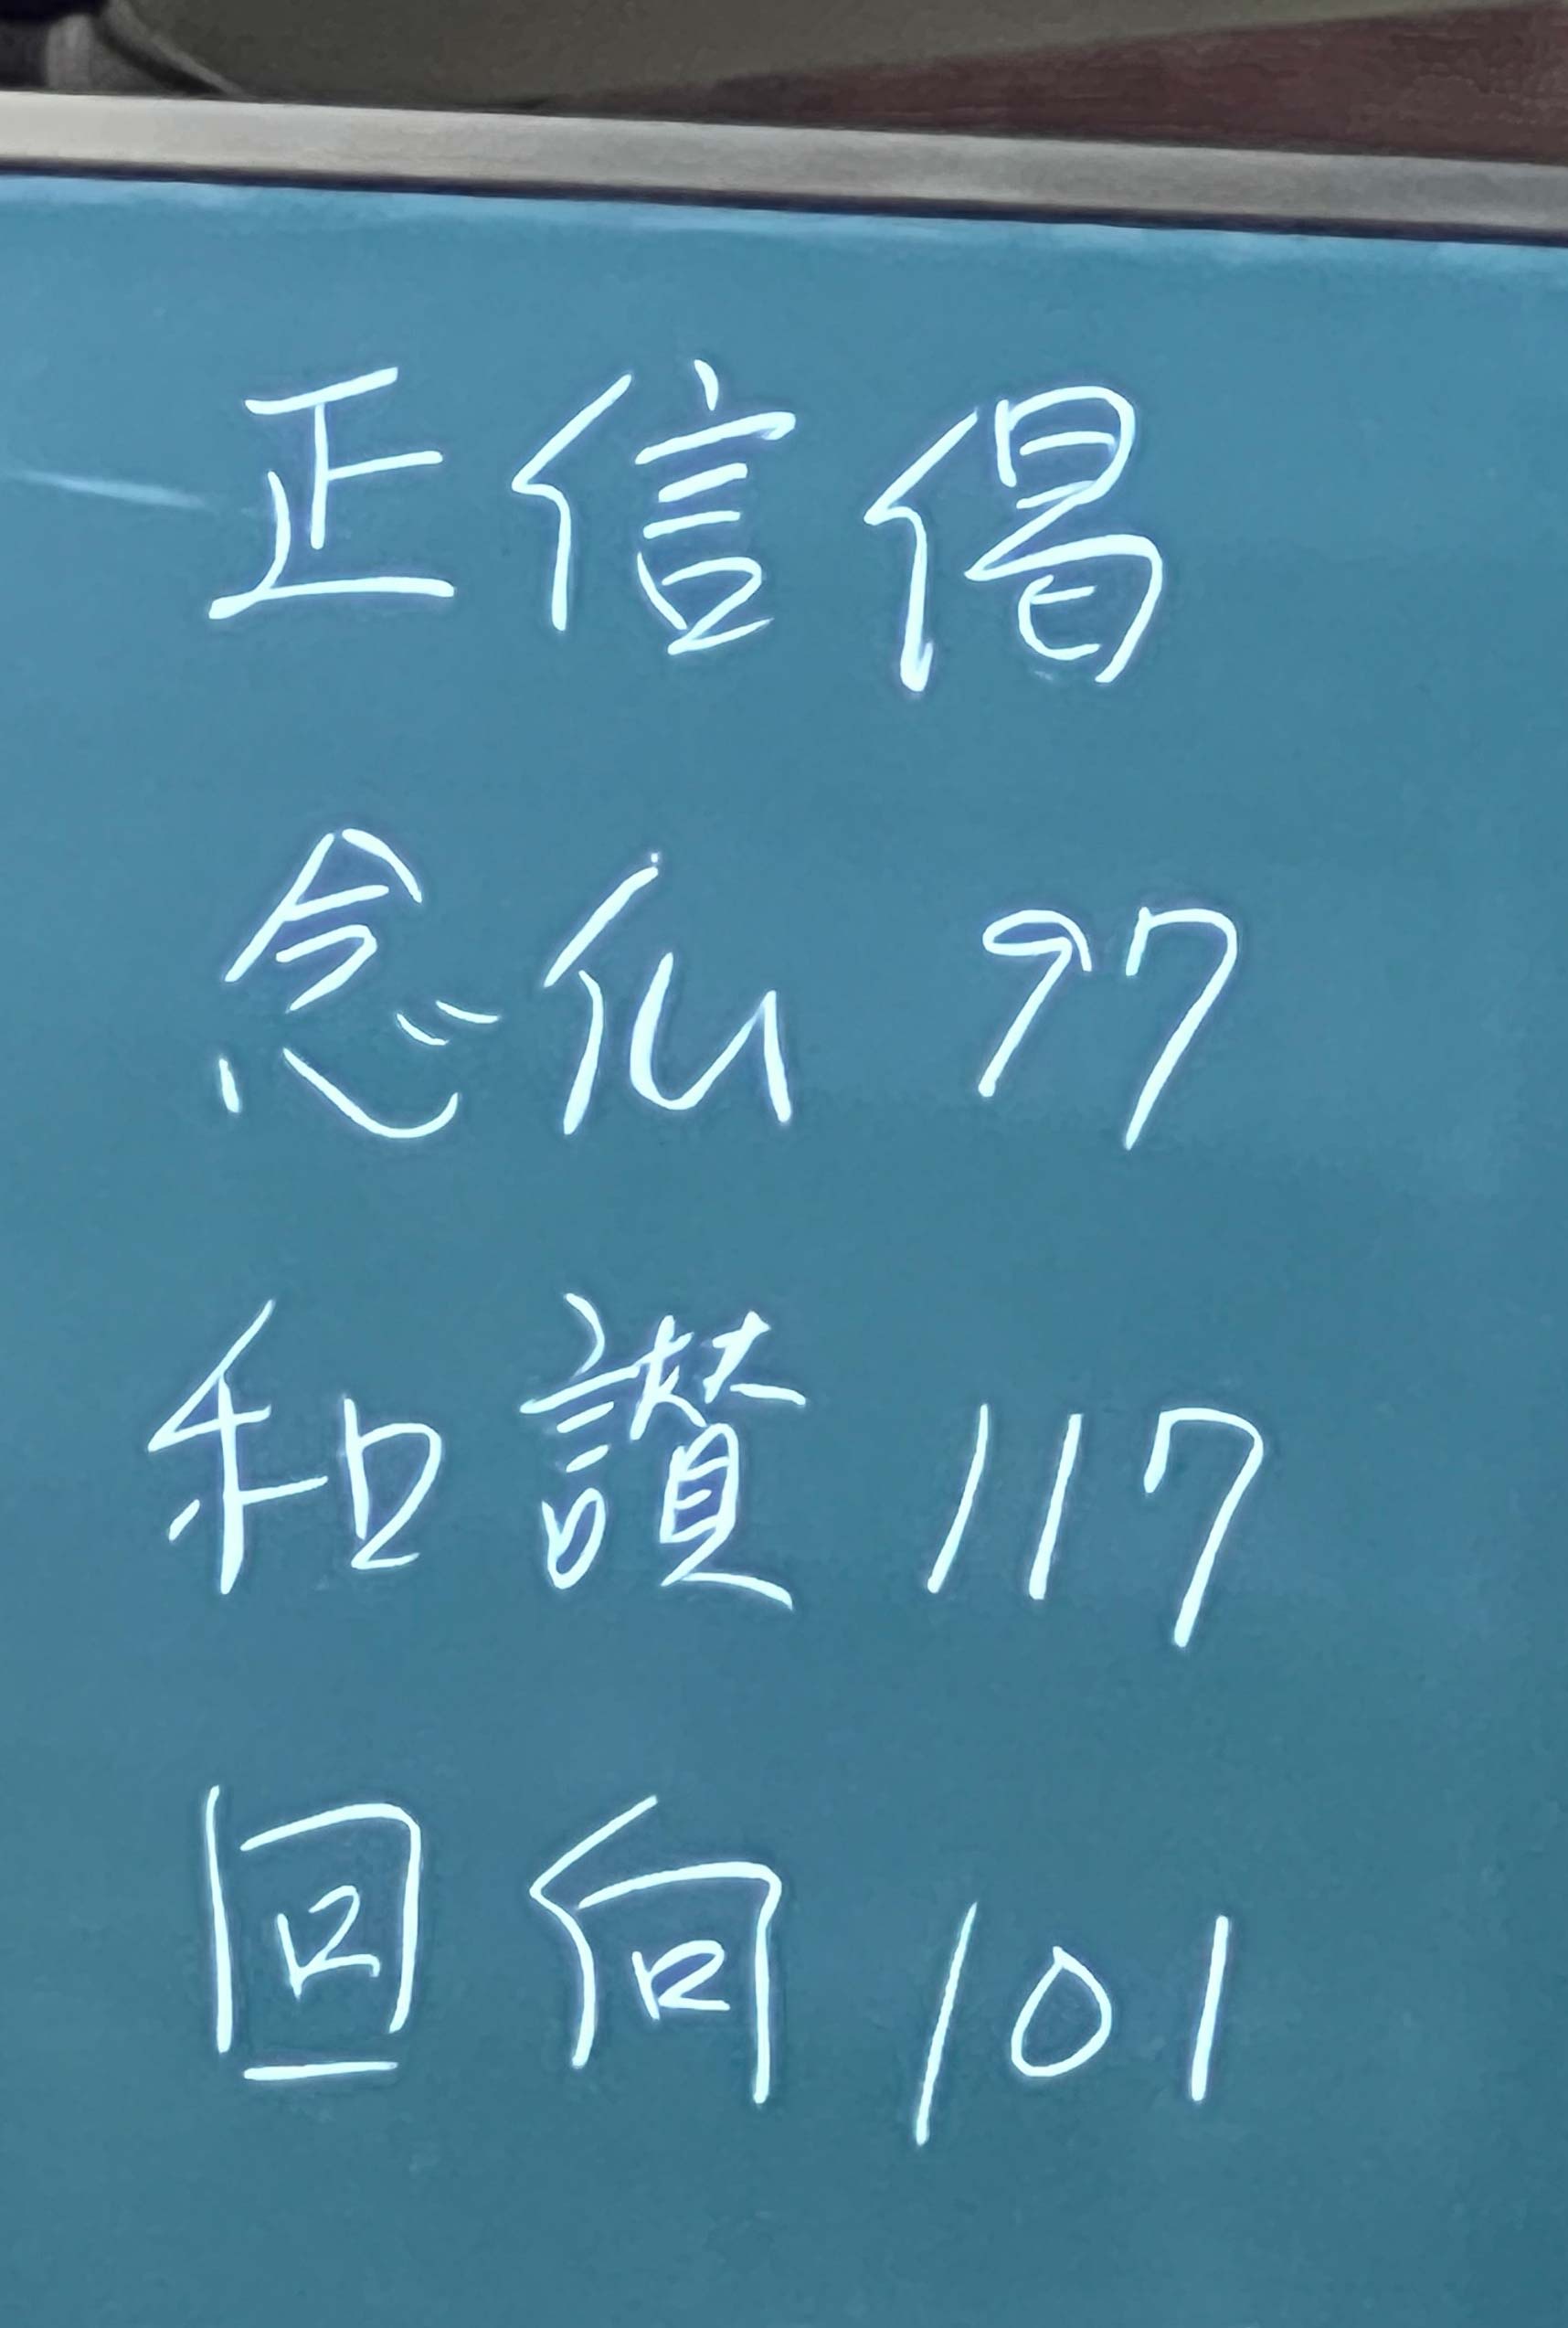 正信偈
念仏 97
和讃 117
回向 101